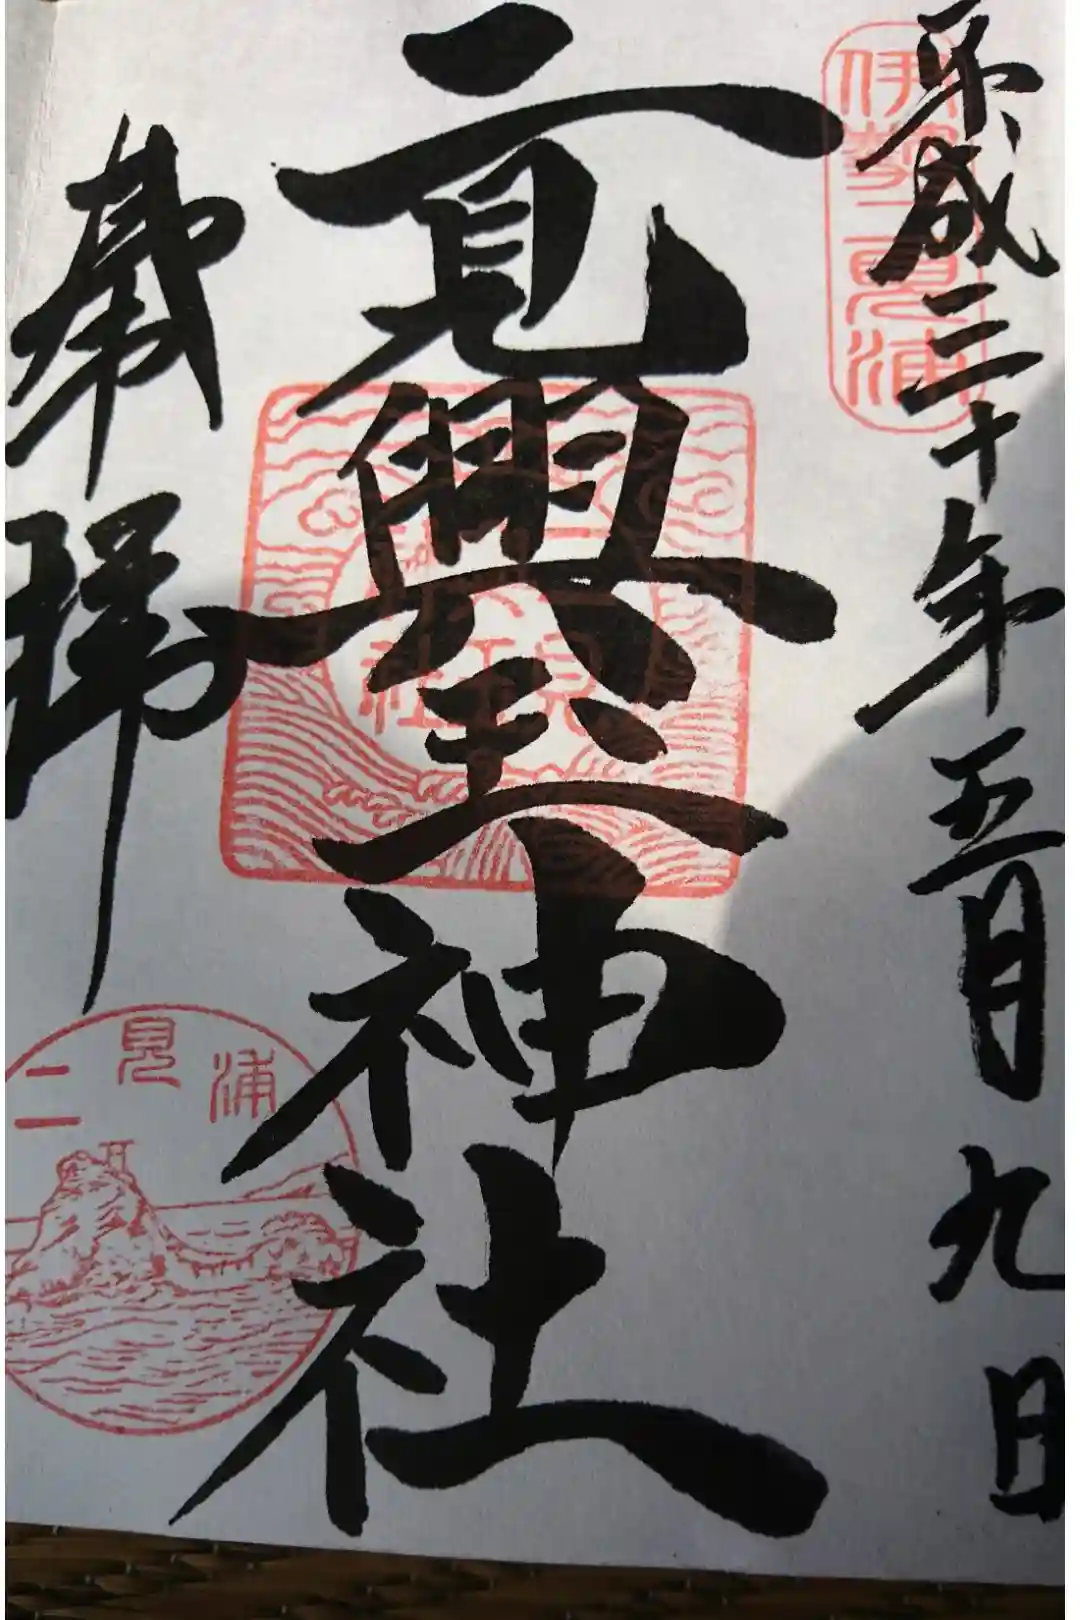 平成三十年五月九日
伊勢二見浦
二見興玉神社
奉拝
二見浦